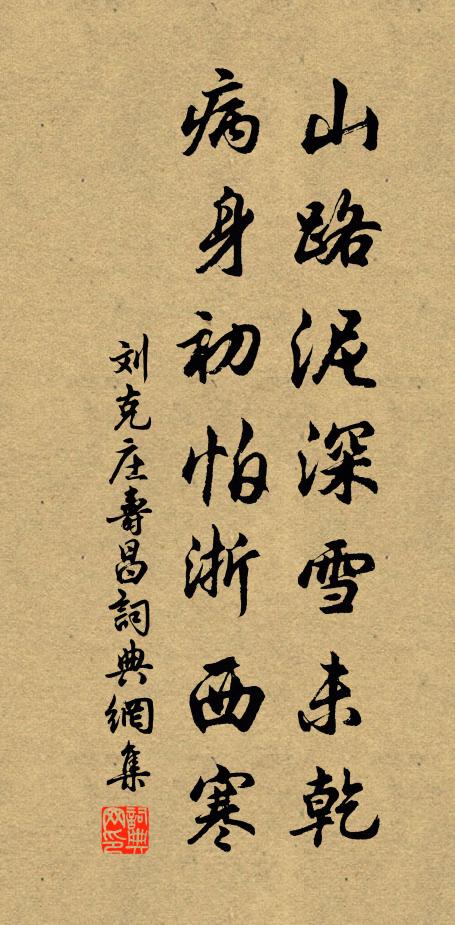 山路泥深雪未乾
病身初怕浙西寒
刘克庄壽昌詞典網集
詞典网印